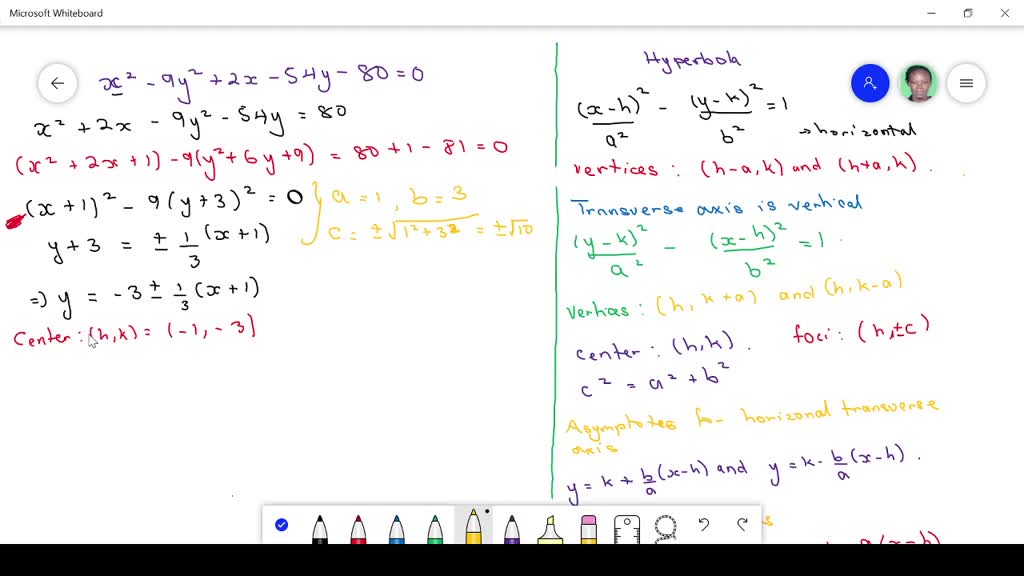 Microsoft Whiteboard
x² - 9y² + 2x - 54y - 80 = 0
x² + 2x - 9y² - 54y = 80
(x² + 2x + 1) - 9(y² + 6y + 9) = 80 + 1 - 81 = 0
(x + 1)² - 9(y + 3)² = 0
y + 3 = ± 1/3 (x + 1)
=> y = -3 ± 1/3 (x + 1)
Center : (h, k) = (-1, -3)
a = 1, b = 3
c = ±√1² + 3² = ±√10
Hyperbola
(x - h)²/a² - (y - k)²/b² = 1
→ horizontal
vertices : (h-a, k) and (h+a, k).
Transverse axis is vertical
(y - k)²/a² - (x - h)²/b² = 1.
vertices : (h, k+a) and (h, k-a)
center : (h, k). foci : (h, ±c)
c² = a² + b²
Asymptotes for horizonal transverse
axis
y = k + b/a (x-h) and y = k - b/a (x-h).